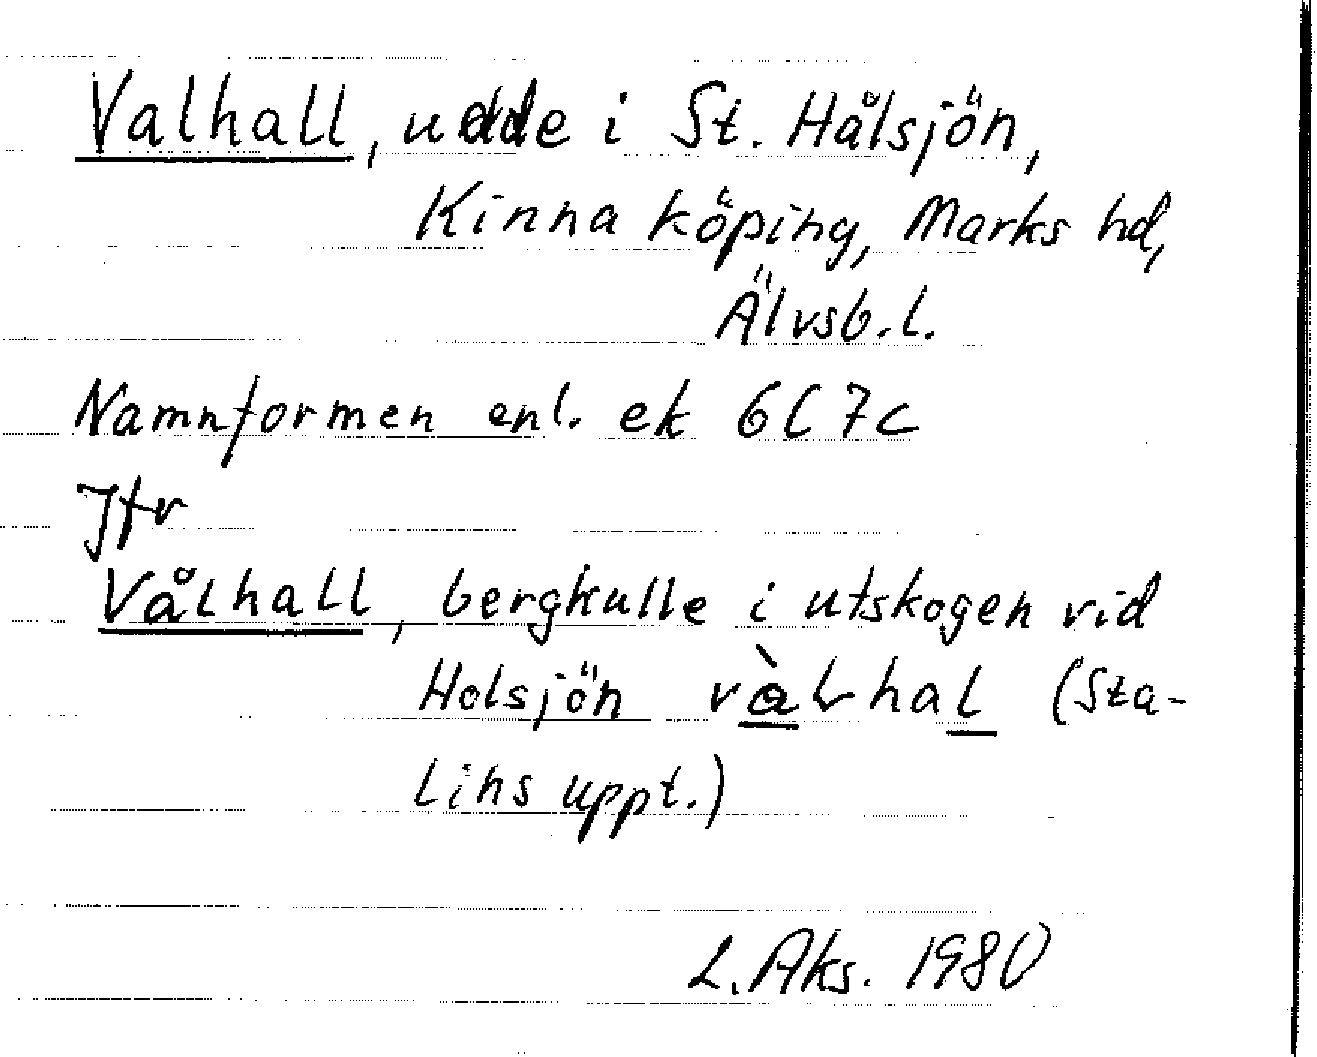 Valhall, udde i St. Hålsjön,
Kinna köping, Marks hd,
Älvsb.l.
Namnformen enl. ek 6C7c
Jfr
Vålhall, bergkulle i utskogen vid
Holsjön vàlhal (Sta-
lins uppt.)
L. Aks. 1980